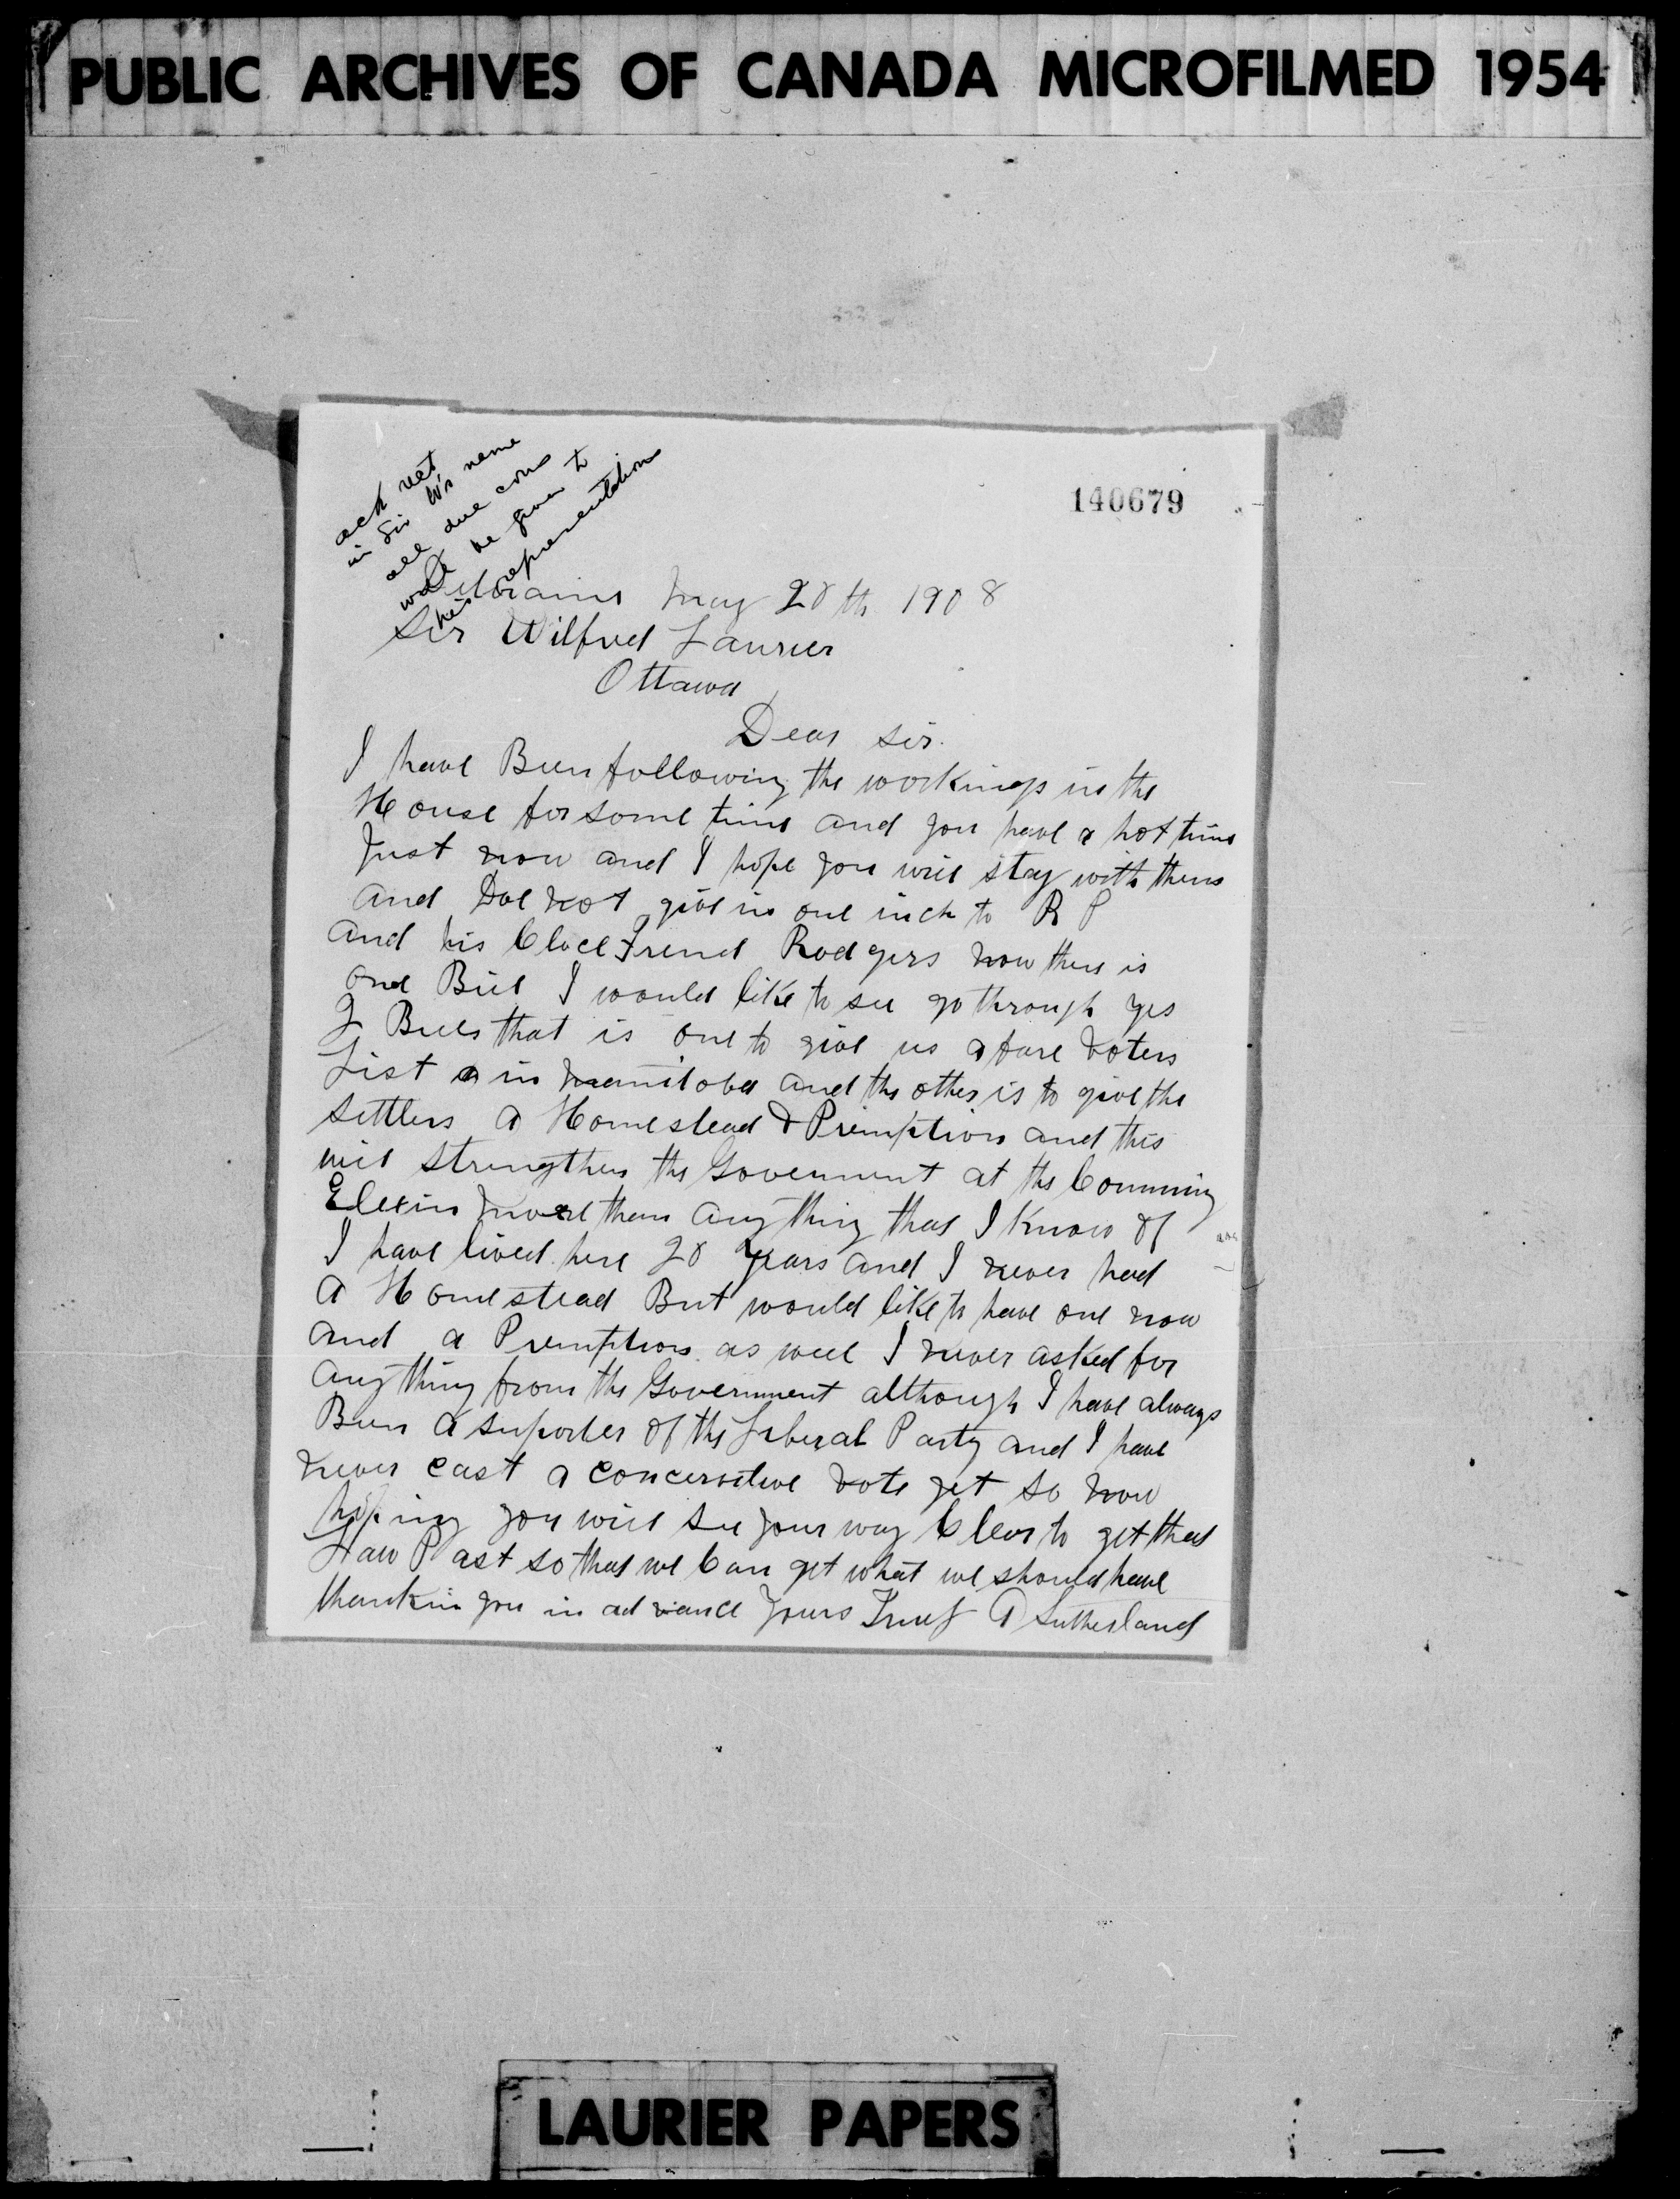 PUBLIC ARCHIVES OF CANADA MICROFILMED 1954
ack rect
in Sir W's name
all due cons
will be given to
his representations
140679
Deloraine May 20th 1908
Sir Wilfred Laurier
Ottawa
Dear sir.
I have Been following the workings in the
House for some time and you have a hot time
Just now and I hope you will stay with them
and Doe not give in one inch to R P
and his Cloce Frend Rodgers now there is
one Bill I would like to see go through yes
2 Bills that is one to give us a fare voters
List in Manitoba and the other is to give the
settlers a Homestead & Premption and this
will strengthen the Goverment at the Comming
Elexin more then any thing that I know of
I have lived here 20 years and I never had
a Homestead But would like to have one now
and a Premption as well I never asked for
any thing from the Government although I have always
Been a suporter of the Liberal Party and I have
never cast a concervitive vote yet so now
hoping you will see your way Clear to get that
Law Past so that we Can get what we should have
thankin you in advance yours Truly A Sutherland
LAURIER PAPERS